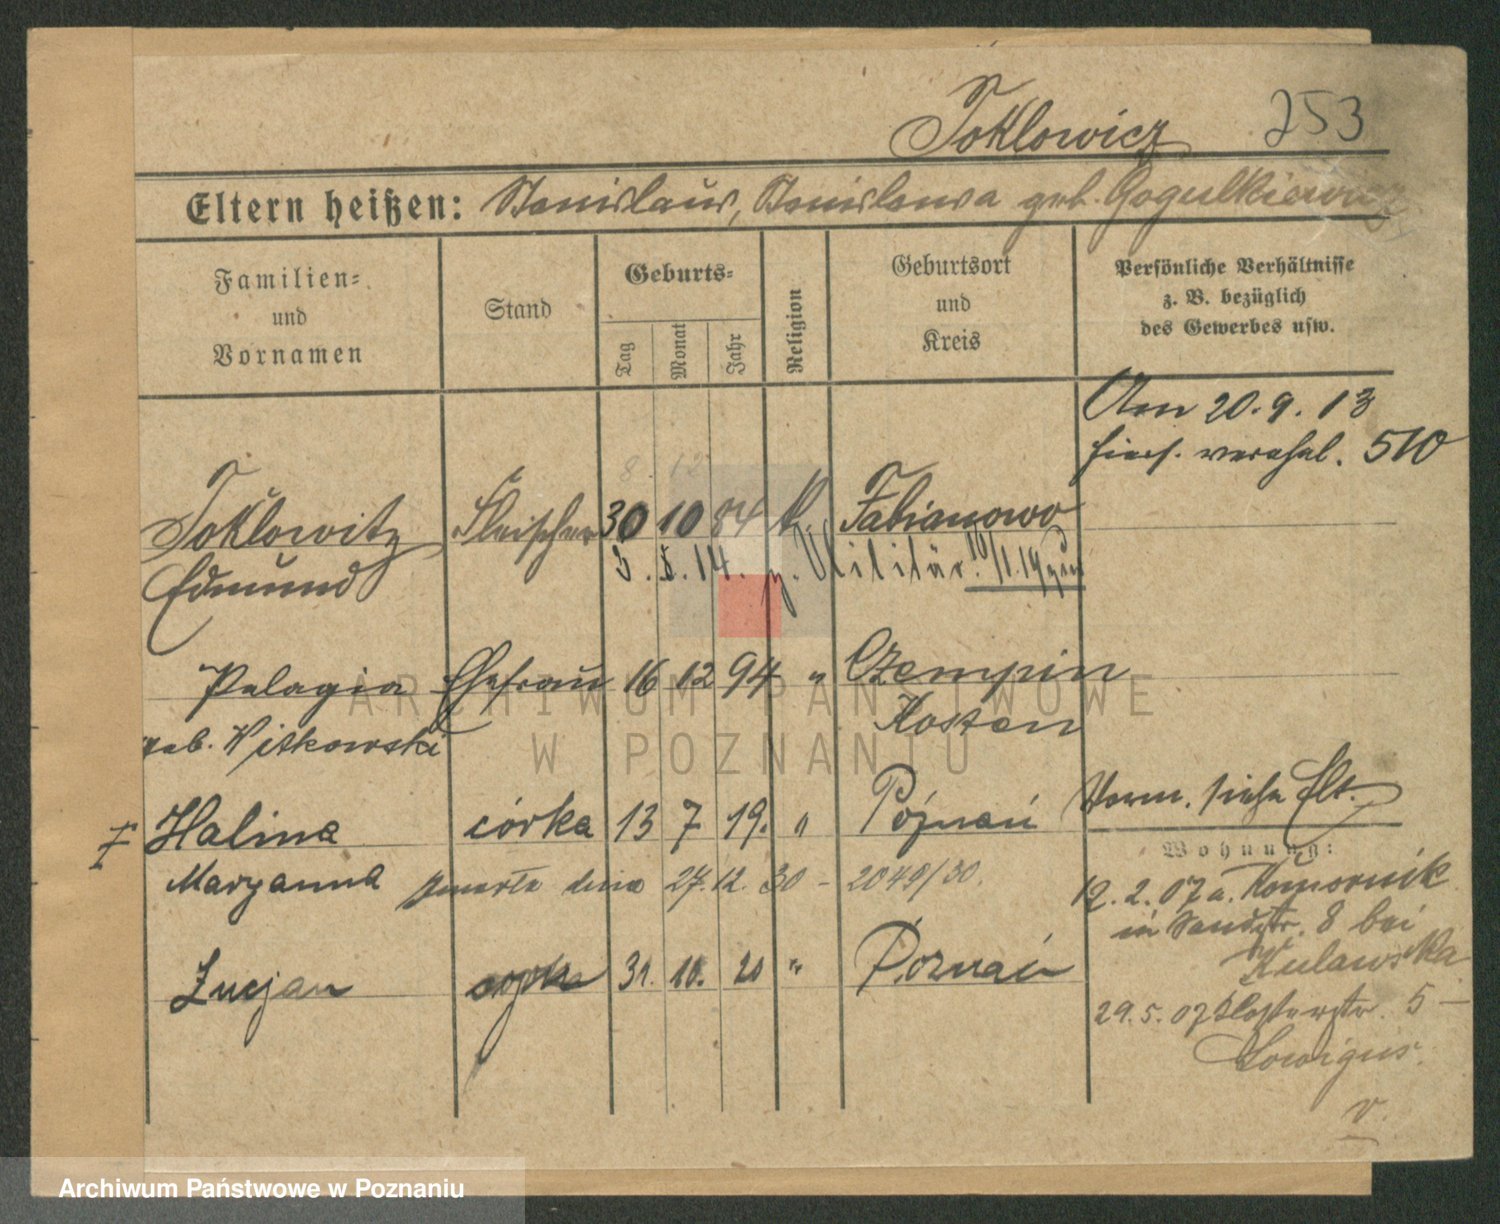 Toklowicz 253
Eltern heißen: Stanislaus, Stanislawa geb. Gogulkiewicz
Familien= und Vornamen
Stand
Geburts=
Tag Monat Jahr
Religion
Geburtsort und Kreis
Persönliche Verhältnisse z. B. bezüglich des Gewerbes usw.
Am 20.9.13
hiers. verehel. 510
8. 12
Toklowitz Fleischer 30 10 84 k Fabianowo
Edmund 3.8.14. z. Militär. 10/1.19
Pelagia Ehefrau 16 12 94 " Czempin
geb. Witkowski Kosten
Verm. siehe Elt.
Halina córka 13 7 19. " Poznań
Wohnung:
Maryanna zmarła dnia 27.12.30 - 2049/30.
12.2.07 a. Komornik
in Sandstr. 8 bei
Kulawska
Lucjan 31. 10. 20 " Poznań
29.5.07 Klosterstr. 5 -
v.
ARCHIWUM PAŃSTWOWE
W POZNANIU
Archiwum Państwowe w Poznaniu